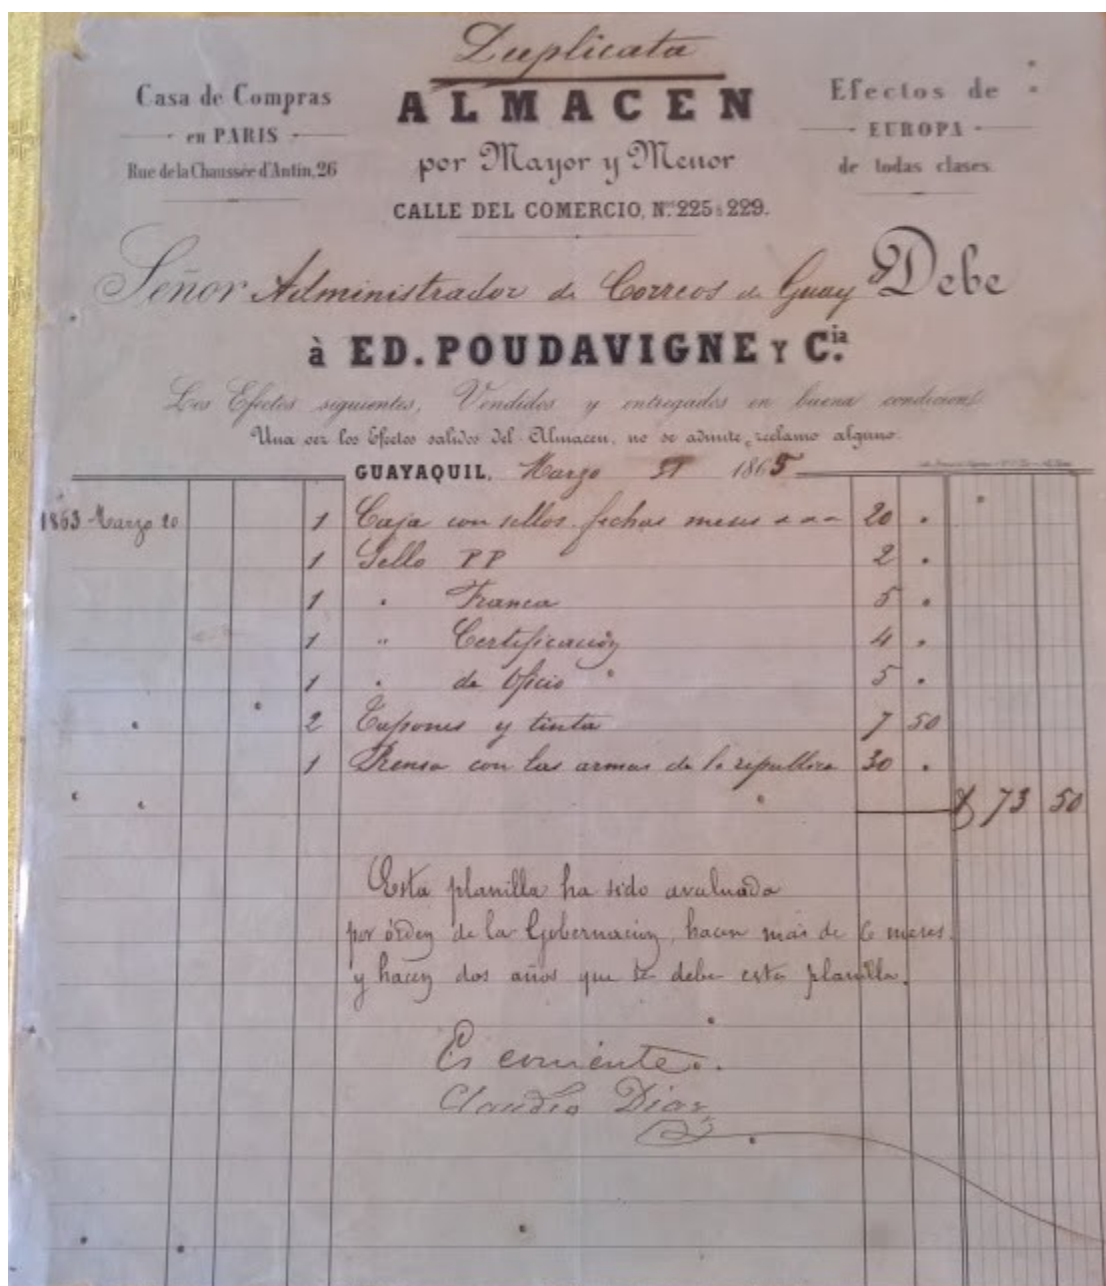 Duplicata
Casa de Compras
en PARIS
Rue de la Chaussée d'Antin, 26
ALMACEN
por Mayor y Menor
CALLE DEL COMERCIO, Nos. 225 á 229.
Efectos de
EUROPA
de todas clases.
Señor Administrador de Correos de Guayl Debe
à ED. POUDAVIGNE Y Cia.
Los Efectos siguientes, Vendidos y entregados en buena condicion.
Una vez los Efectos salidos del Almacen, no se admite reclamo alguno.
GUAYAQUIL, Marzo 31 1865
1863 Marzo 20 1 Caja con sellos fechas meses 20 "
1 Sello PP 2 "
1 " Franca 5 "
1 " Certificación 4 "
1 " de Oficio 5 "
2 Tapones y tinta 7 50
1 Prensa con las armas de la republica 30 "
$ 73 50
Esta planilla ha sido avaluada
por órden de la Gobernacion, hacen más de 6 meses
y hacen dos años que se debe esta planilla.
Es corriente.
Claudio Diaz